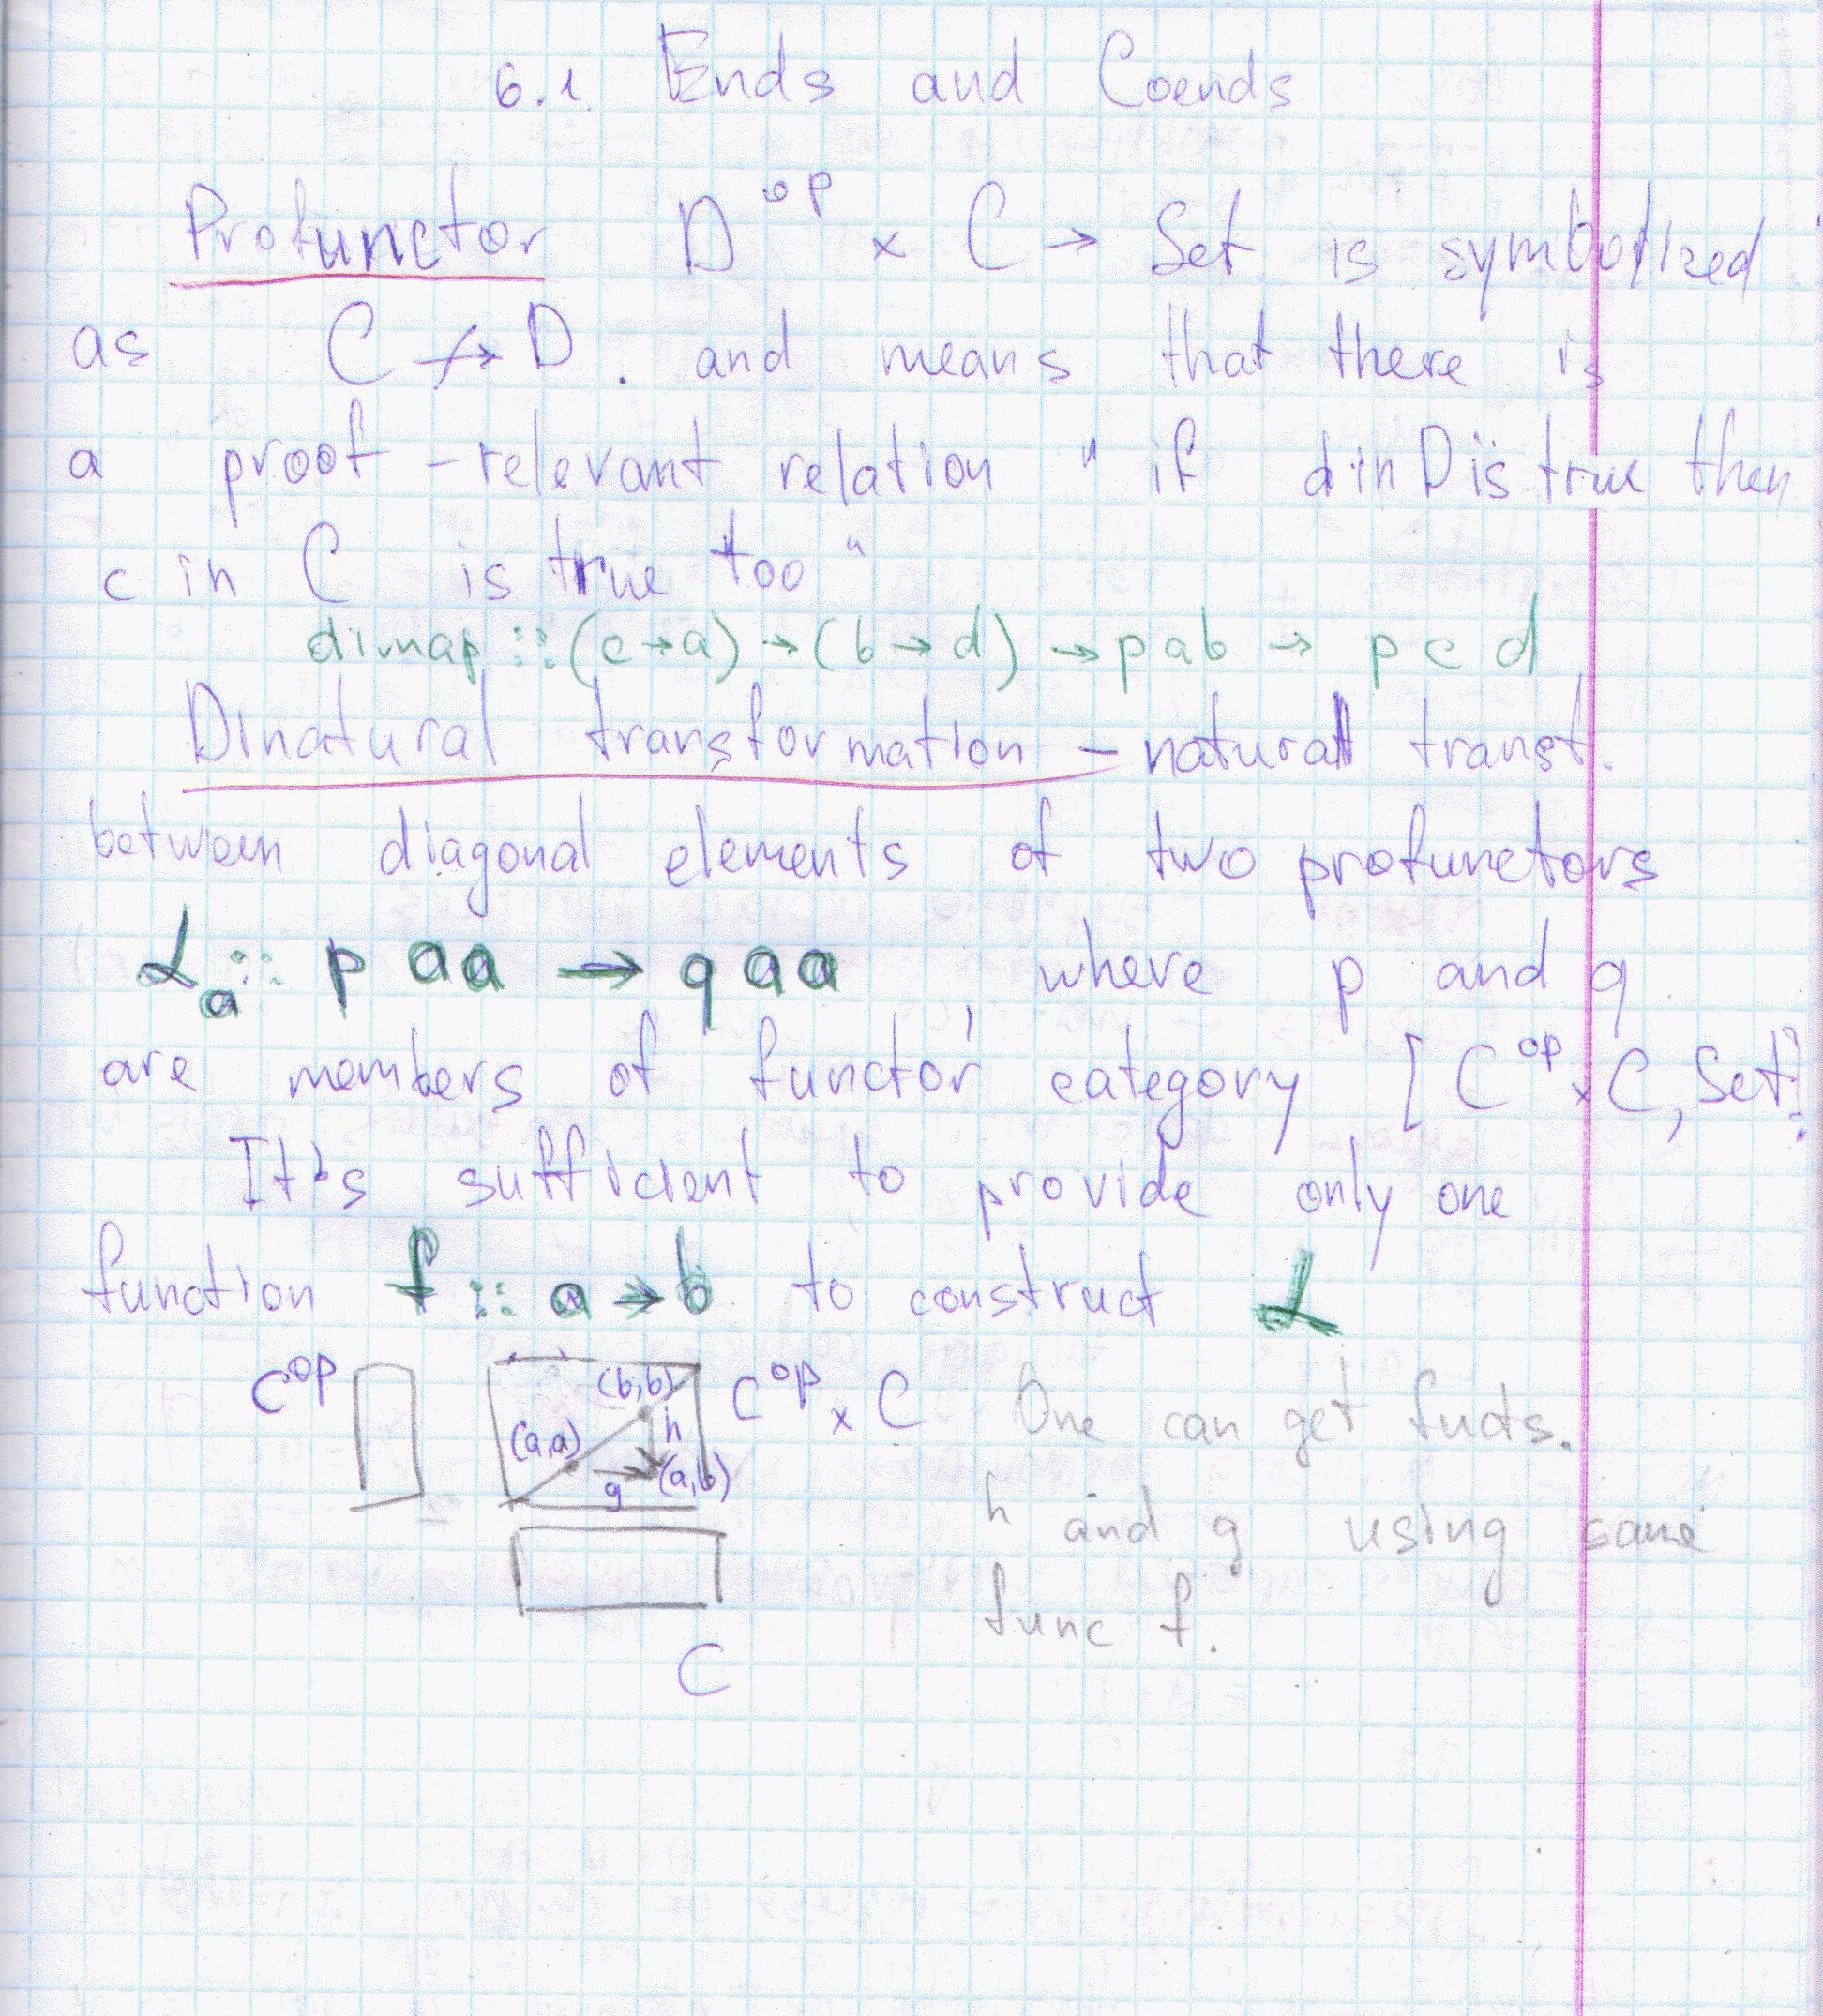 6.1. Ends and Coends
Profunctor D^op × C → Set is symbolized
as C ↛ D . and means that there is
a proof-relevant relation " if d in D is true then
c in C is true too "
dimap :: (c → a) → (b → d) → p a b → p c d
Dinatural transformation – natural transf.
between diagonal elements of two profunctors
α_a :: p a a → q a a where p and q
are members of functor category [ C^op × C, Set ].
It's sufficient to provide only one
function f :: a → b to construct α
C^op (b,b) C^op × C One can get
h
(a,a) (a,b)
g
h and g using same
func f.
C